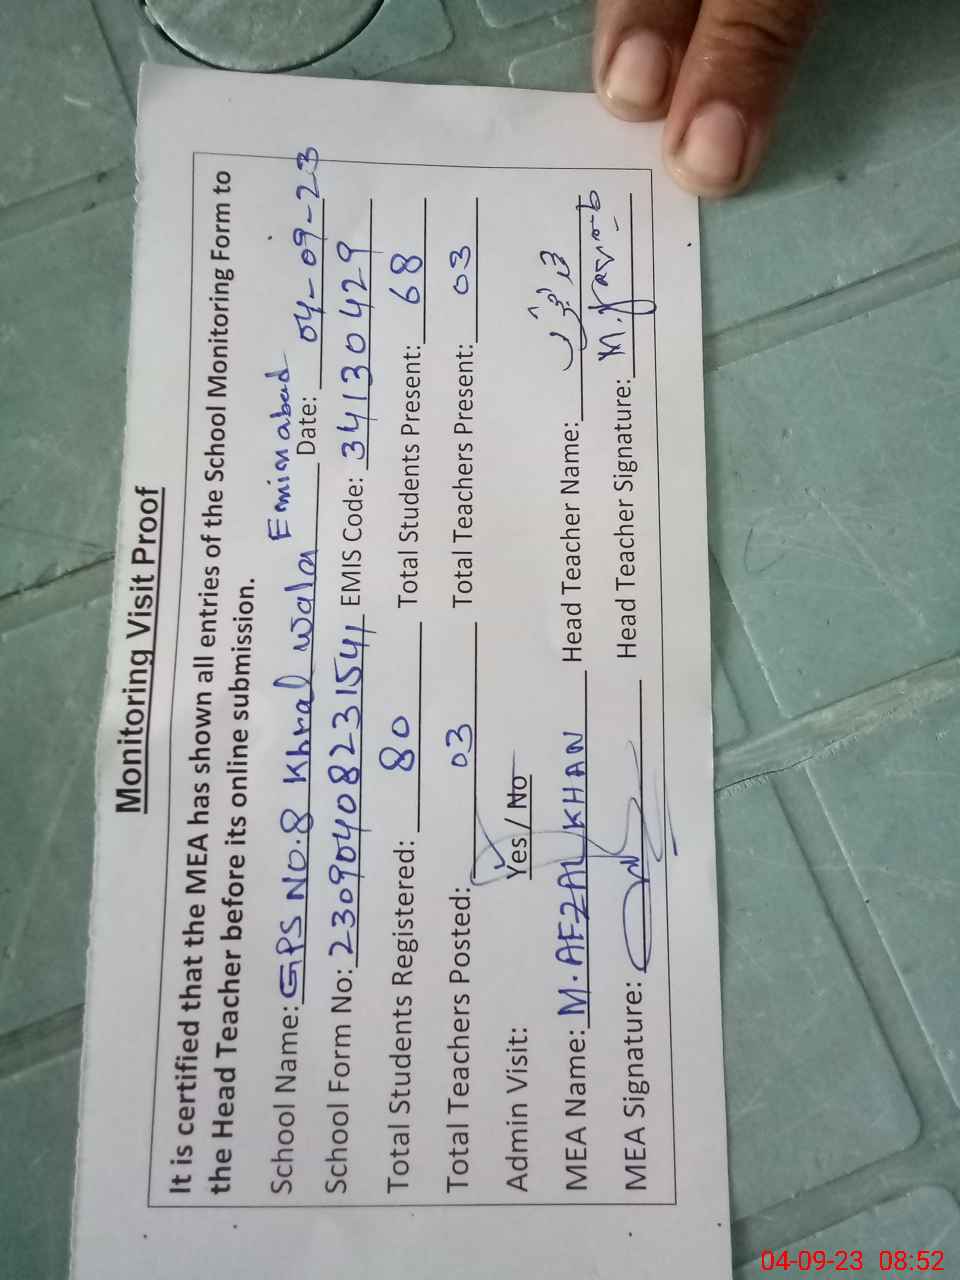 Monitoring Visit Proof
It is certified that the MEA has shown all entries of the School Monitoring Form to
the Head Teacher before its online submission.
School Name: GPS NO.8 Khral wala Eminabad Date: 04-09-23
School Form No: 23090408231541 EMIS Code: 34130429
Total Students Registered: 80 Total Students Present: 68
Total Teachers Posted: 03 Total Teachers Present: 03
Admin Visit: Yes / No
MEA Name: M. AFZAL KHAN Head Teacher Name:
MEA Signature: Head Teacher Signature: M.
04-09-23 08:52